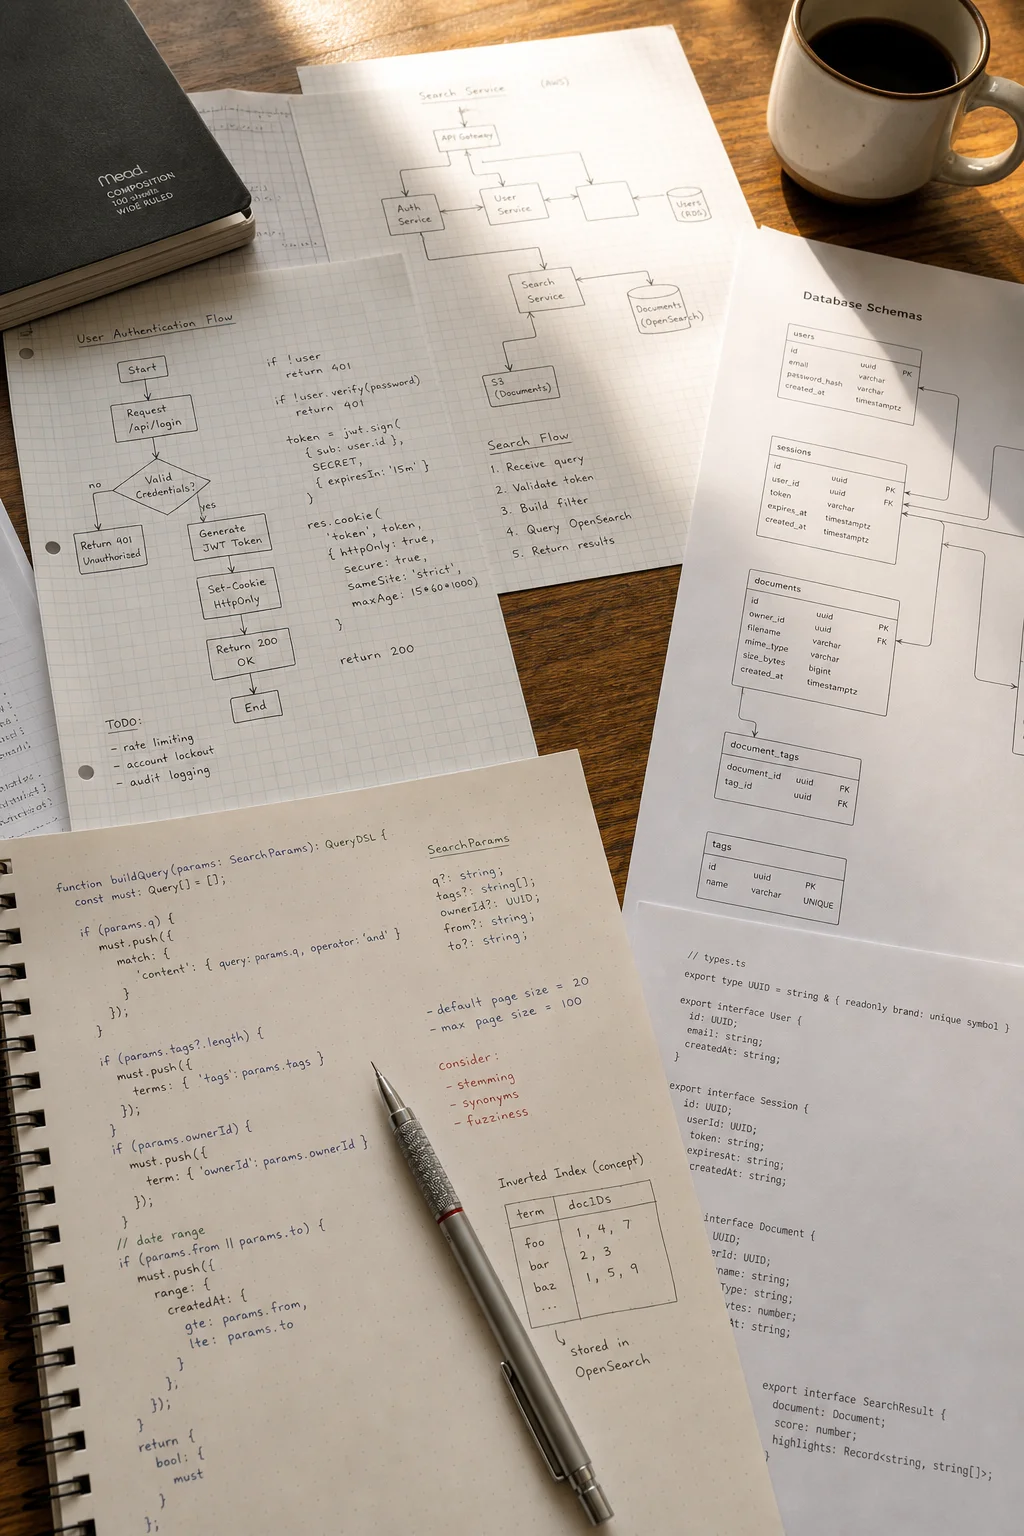 Mead.
COMPOSITION
100 sheets
WIDE RULED
Search Service (AWS)
API Gateway
Auth
Service
User
Service
Users
(RDS)
Search
Service
Documents
(OpenSearch)
S3
(Documents)
Search Flow
1. Receive query
2. Validate token
3. Build filter
4. Query OpenSearch
5. Return results
User Authentication Flow
Start
Request
/api/login
Valid
Credentials?
no
yes
Return 401
Unauthorised
Generate
JWT Token
Set-Cookie
HttpOnly
Return 200
OK
End
if !user
return 401
if !user.verify(password)
return 401
token = jwt.sign(
{ sub: user.id },
SECRET,
{ expiresIn: '15m' }
)
res.cookie(
'token', token,
{ httpOnly: true,
secure: true,
sameSite: 'strict',
maxAge: 15*60*1000)
}
return 200
TODO:
- rate limiting
- account lockout
- audit logging
Database Schemas
users
id uuid PK
email varchar
password_hash varchar
created_at timestamptz
sessions
id uuid PK
user_id uuid FK
token varchar
expires_at timestamptz
created_at timestamptz
documents
id uuid PK
owner_id uuid FK
filename varchar
mime_type varchar
size_bytes bigint
created_at timestamptz
document_tags
document_id uuid FK
tag_id uuid FK
tags
id uuid PK
name varchar UNIQUE
function buildQuery(params: SearchParams): QueryDSL {
const must: Query[] = [];
if (params.q) {
must.push({
match: {
'content': { query: params.q, operator: 'and' }
}
});
}
if (params.tags?.length) {
must.push({
terms: { 'tags': params.tags }
});
}
if (params.ownerId) {
must.push({
term: { 'ownerId': params.ownerId }
});
}
// date range
if (params.from || params.to) {
must.push({
range: {
createdAt: {
gte: params.from,
lte: params.to
}
};
});
}
return {
bool: {
must
}
};
SearchParams
q?: string;
tags?: string[];
ownerId?: UUID;
from?: string;
to?: string;
- default page size = 20
- max page size = 100
consider:
- stemming
- synonyms
- fuzziness
Inverted Index (concept)
term docIDs
foo 1, 4, 7
bar 2, 3
baz 1, 5, 9
...
stored in
OpenSearch
// types.ts
export type UUID = string & { readonly brand: unique symbol }
export interface User {
id: UUID;
email: string;
createdAt: string;
}
export interface Session {
id: UUID;
userId: UUID;
token: string;
expiresAt: string;
createdAt: string;
interface Document {
UUID;
erId: UUID;
name: string;
Type: string;
ytes: number;
At: string;
export interface SearchResult {
document: Document;
score: number;
highlights: Record<string, string[]>;
}